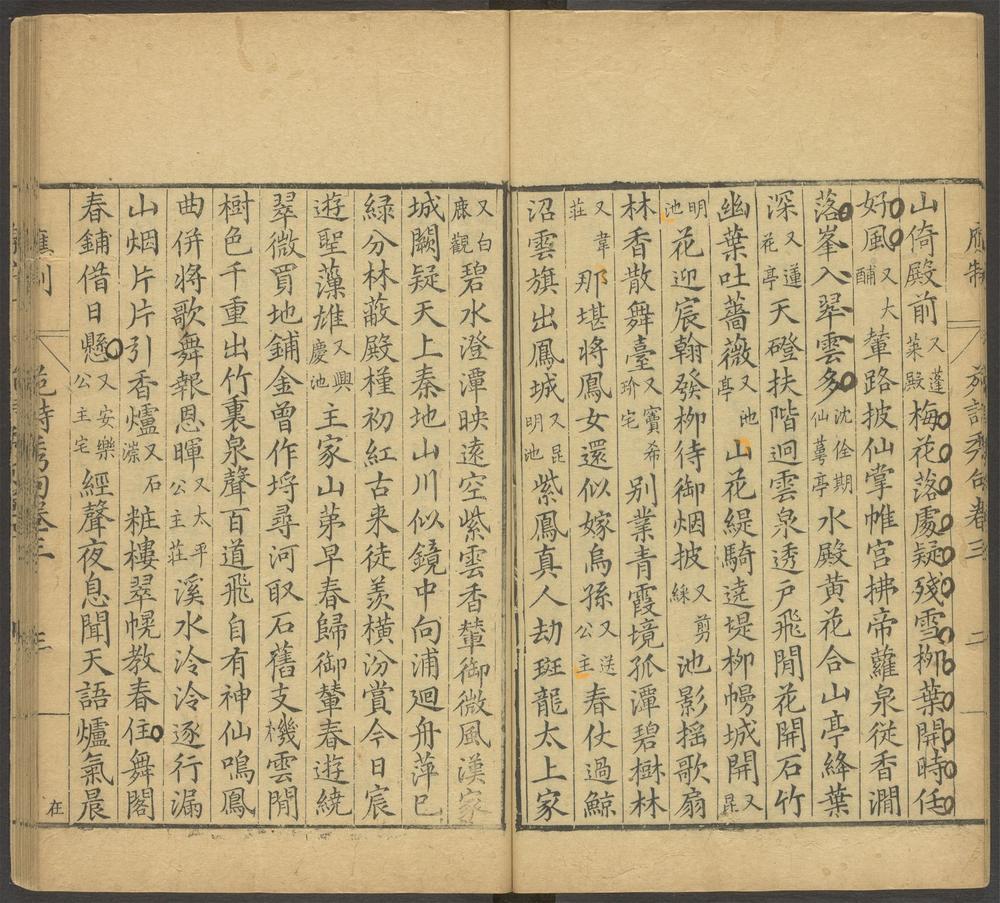 山倚殿前又蓬萊殿梅花落處疑殘雪柳葉開時任
好風又大酺輦路披仙掌帷宮拂帝蘿泉從香澗
落峯入翠雲多沈佺期仙萼亭水殿黃花合山亭絳葉
深又蓮花亭天磴扶階迴雲泉透戶飛閒花開石竹
幽葉吐薔薇又池亭山花緹騎遶堤柳幔城開又昆
明池花迎宸翰發柳待御烟披又剪綵池影搖歌扇
林香散舞臺又寶希玠宅別業青霞境孤潭碧樹林
又韋莊那堪將鳳女還似嫁烏孫又送公主春仗過鯨
沼雲旗出鳳城又昆明池紫鳳真人劫斑龍太上家
又白鹿觀碧水澄潭映遠空紫雲香輦御微風漢家
城闕疑天上秦地山川似鏡中向浦廻舟萍已
綠分林蔽殿槿初紅古来徒羨橫汾賞今日宸
遊聖藻雄又興慶池主家山苐早春歸御輦春遊繞
翠微買地鋪金曾作埒尋河取石舊支機雲間
樹色千重出竹裏泉聲百道飛自有神仙鳴鳳
曲併將歌舞報恩暉又太平公主莊溪水泠泠逐行漏
山烟片片引香爐又石淙粧樓翠幌教春住舞閣
春鋪借日懸又安樂公主宅經聲夜息聞天語爐氣晨
在